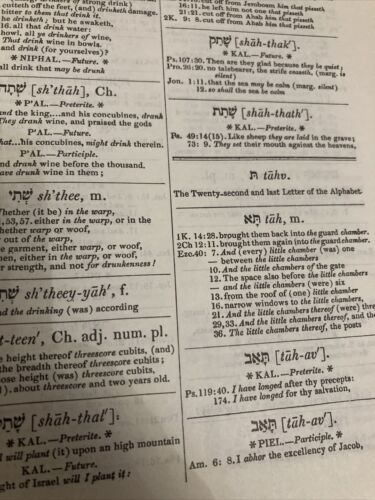 drinkers of strong drink)
cutteth off their feet, (and) drinketh damage.
bitter to them that drink it.
he drinketh; but he awaketh,
16. all that drink water:
howl, all ye drinkers of wine,
That drink wine in bowls.
and drink (for yourselves)?
* NIPHAL.—Future.
all drink that may be drunk
[sh'thāh], Ch.
P'AL.—Preterite.
and the king,...and his concubines, drank
They drank wine, and praised the gods
P'AL.—Future.
that...his concubines, might drink therein.
P'AL.—Participle.
and drank wine before the thousand.
have drunk wine in them;
שְׁתִי sh'thee, m.
Whether (it be) in the warp,
51,53,57. either in the warp, or in the
whether warp or woof,
out of the warp,
the garment, either warp, or woof,
open, either in the warp, or woof,
for strength, and not for drunkenness!
שְׁתִיָּה sh'theey-yāh', f.
And the drinking (was) according
Ch. adj. num. pl.
the height thereof threescore cubits, (and)
the breadth thereof threescore cubits;
whose height (was) threescore cubits,
about threescore and two years old.
שָׁתַל [shāh-thal']:
* KAL.—Preterite. *
I will plant (it) upon an high mountain
KAL.—Future.
of Israel will I plant it:
cut off from Jeroboam him that pisseth
16:11. he left him not one that pisseth
21:21. cut off from Ahab him that pisseth
2K. 9: 8. cut off from Ahab him that pisseth
שָׁתַק [shāh-thak'].
* KAL.—Future. *
Ps.107:30. Then are they glad because they be quiet;
Pro.26:20. no talebearer, the strife ceaseth, (marg. is
silent)
Jon. 1:11. that the sea may be calm (marg. silent)
12. so shall the sea be calm
שָׁתַת [shāh-thath'].
* KAL.—Preterite. *
Ps. 49:14(15). Like sheep they are laid in the grave;
73: 9. They set their mouth against the heavens,
ת tāhv.
The Twenty-second and last Letter of the Alphabet.
תָּא tāh, m.
1K. 14:28. brought them back into the guard chamber.
2Ch 12:11. brought them again into the guard chamber.
Eze.40: 7. And (every) little chamber (was) one
— between the little chambers
10. And the little chambers of the gate
12. The space also before the little chambers
— and the little chambers (were) six
13. from the roof of (one) little chamber
16. narrow windows to the little chambers,
21. And the little chambers thereof (were) three
29,33. And the little chambers thereof, and the
36. The little chambers thereof, the posts
תָּאַב [tāh-av'].
* KAL.—Preterite. *
Ps.119:40. I have longed after thy precepts:
174. I have longed for thy salvation,
תָּאַב [tāh-av'].
* PIEL.—Participle. *
Am. 6: 8. I abhor the excellency of Jacob,